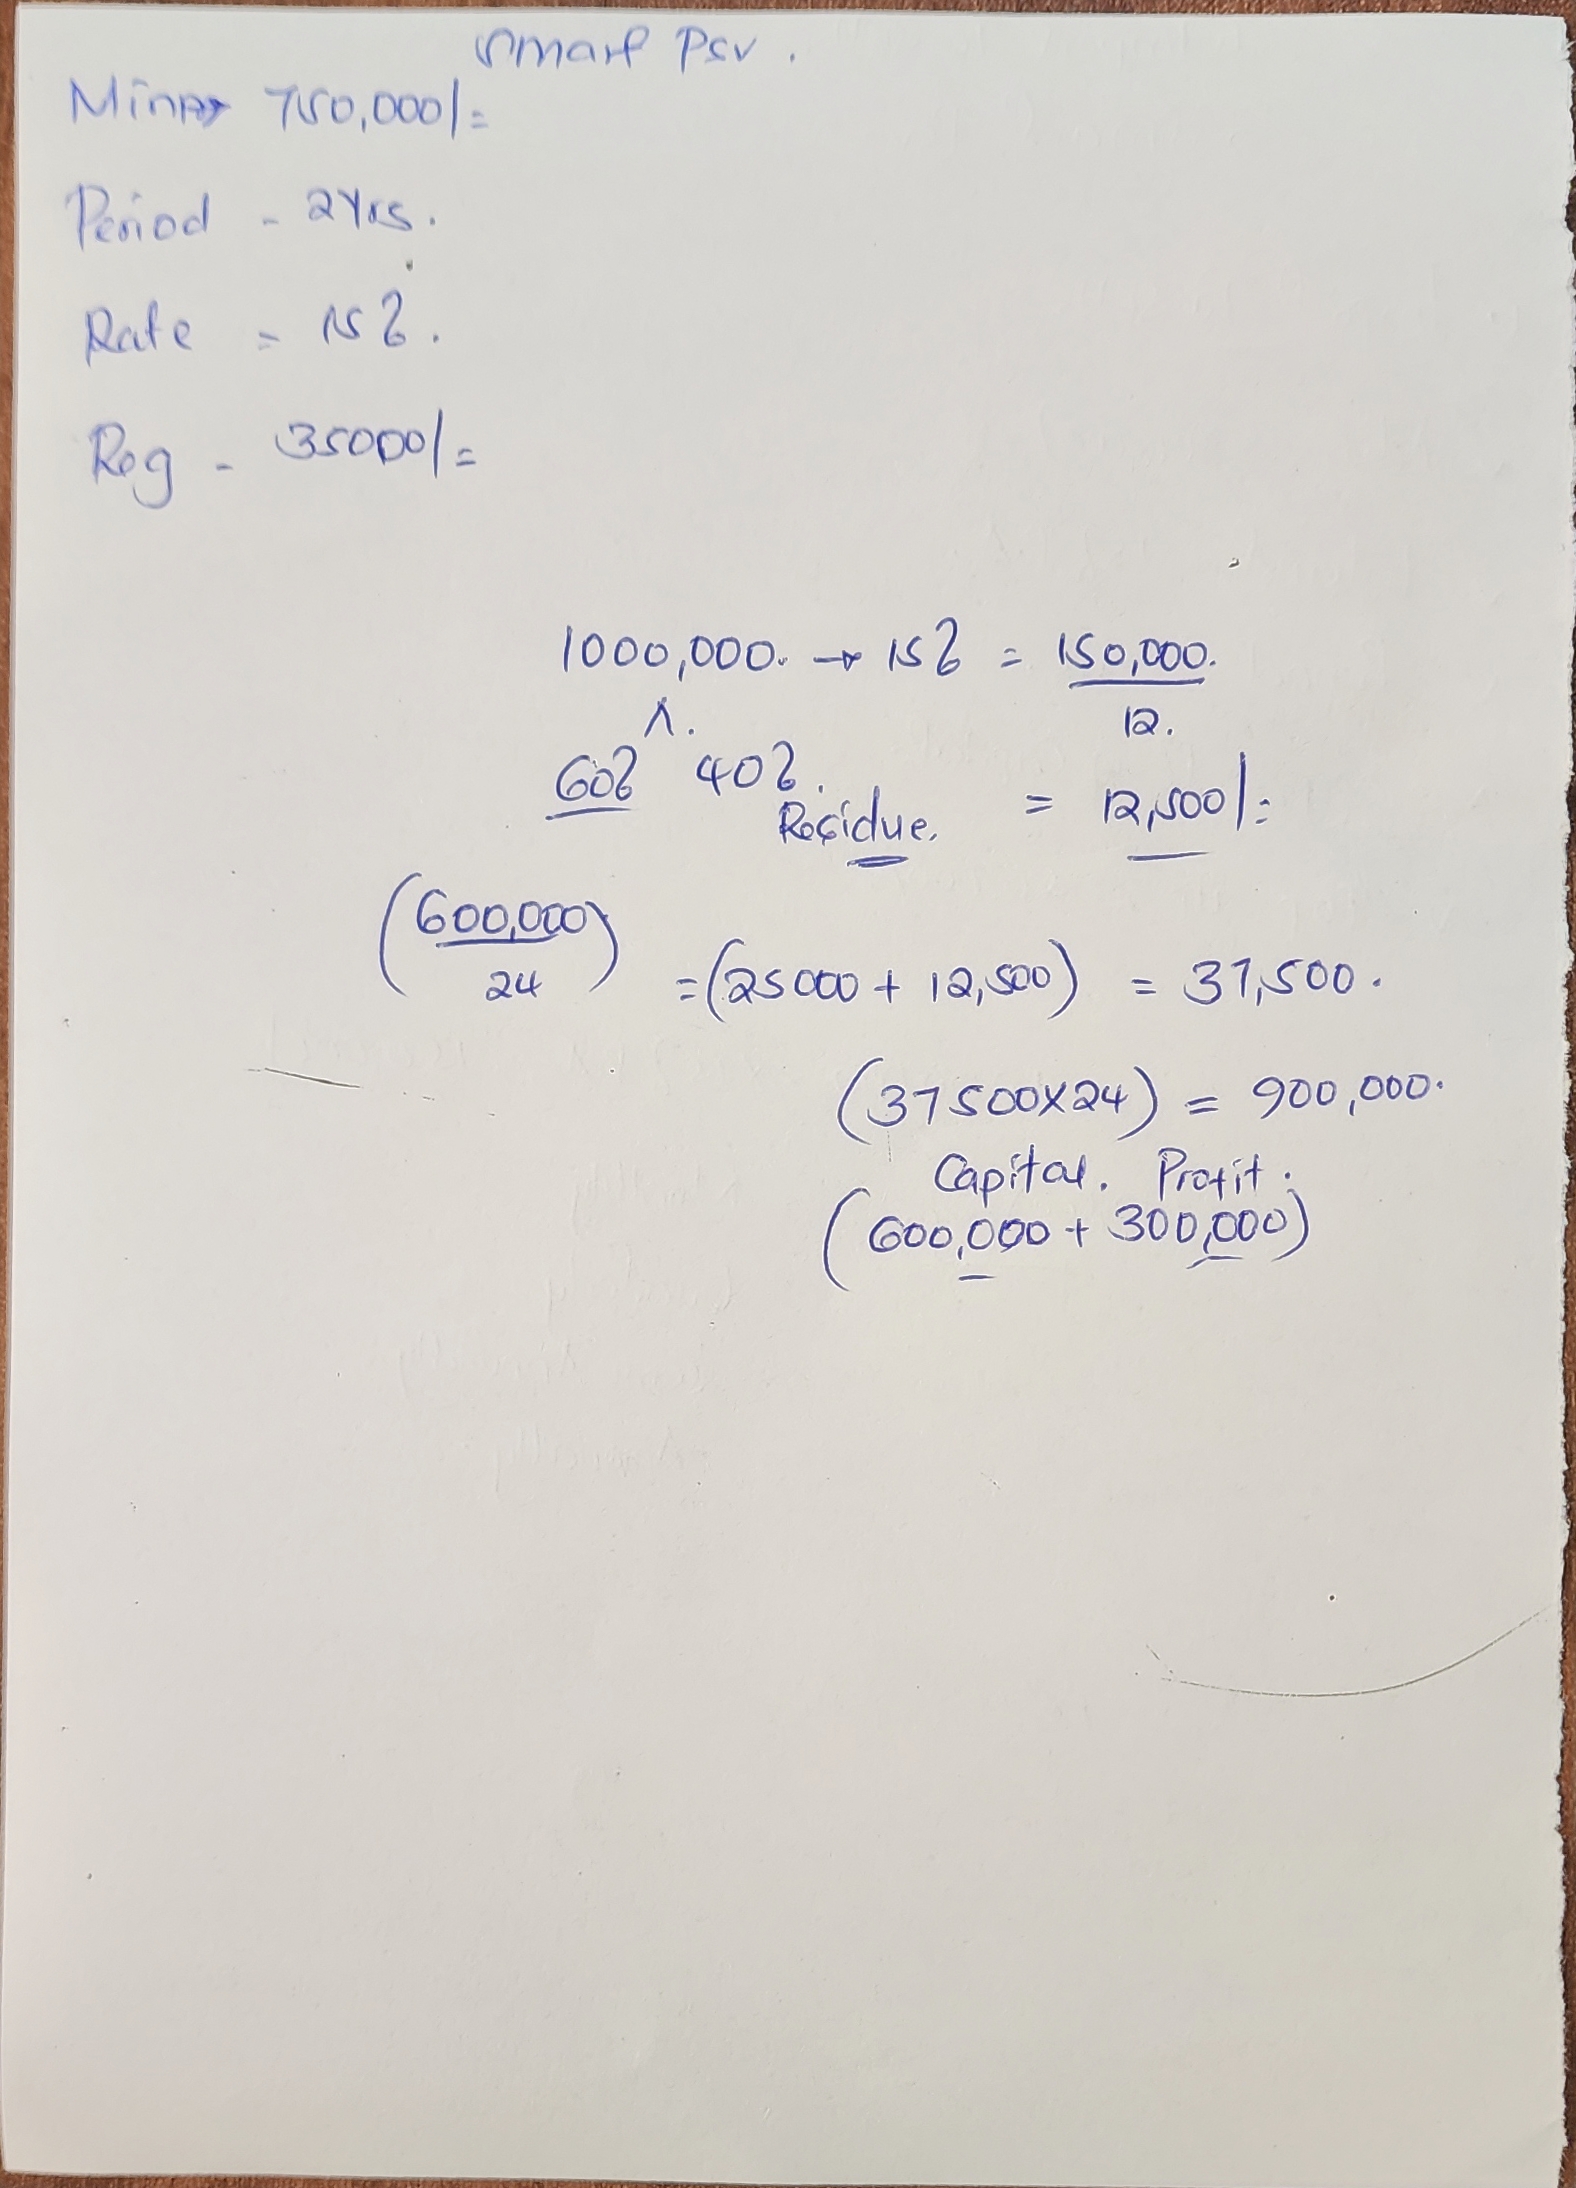 Smart Psv.
Min 750,000/=
Period - 2Yrs.
Rate = 15%.
Reg - 35000/=
1000,000. → 15% = 150,000.
12.
60% 40%.
Residue. = 12,500/=
(600,000)
24 = (25000 + 12,500) = 37,500.
(37500x24) = 900,000.
Capital. Profit.
(600,000 + 300,000)